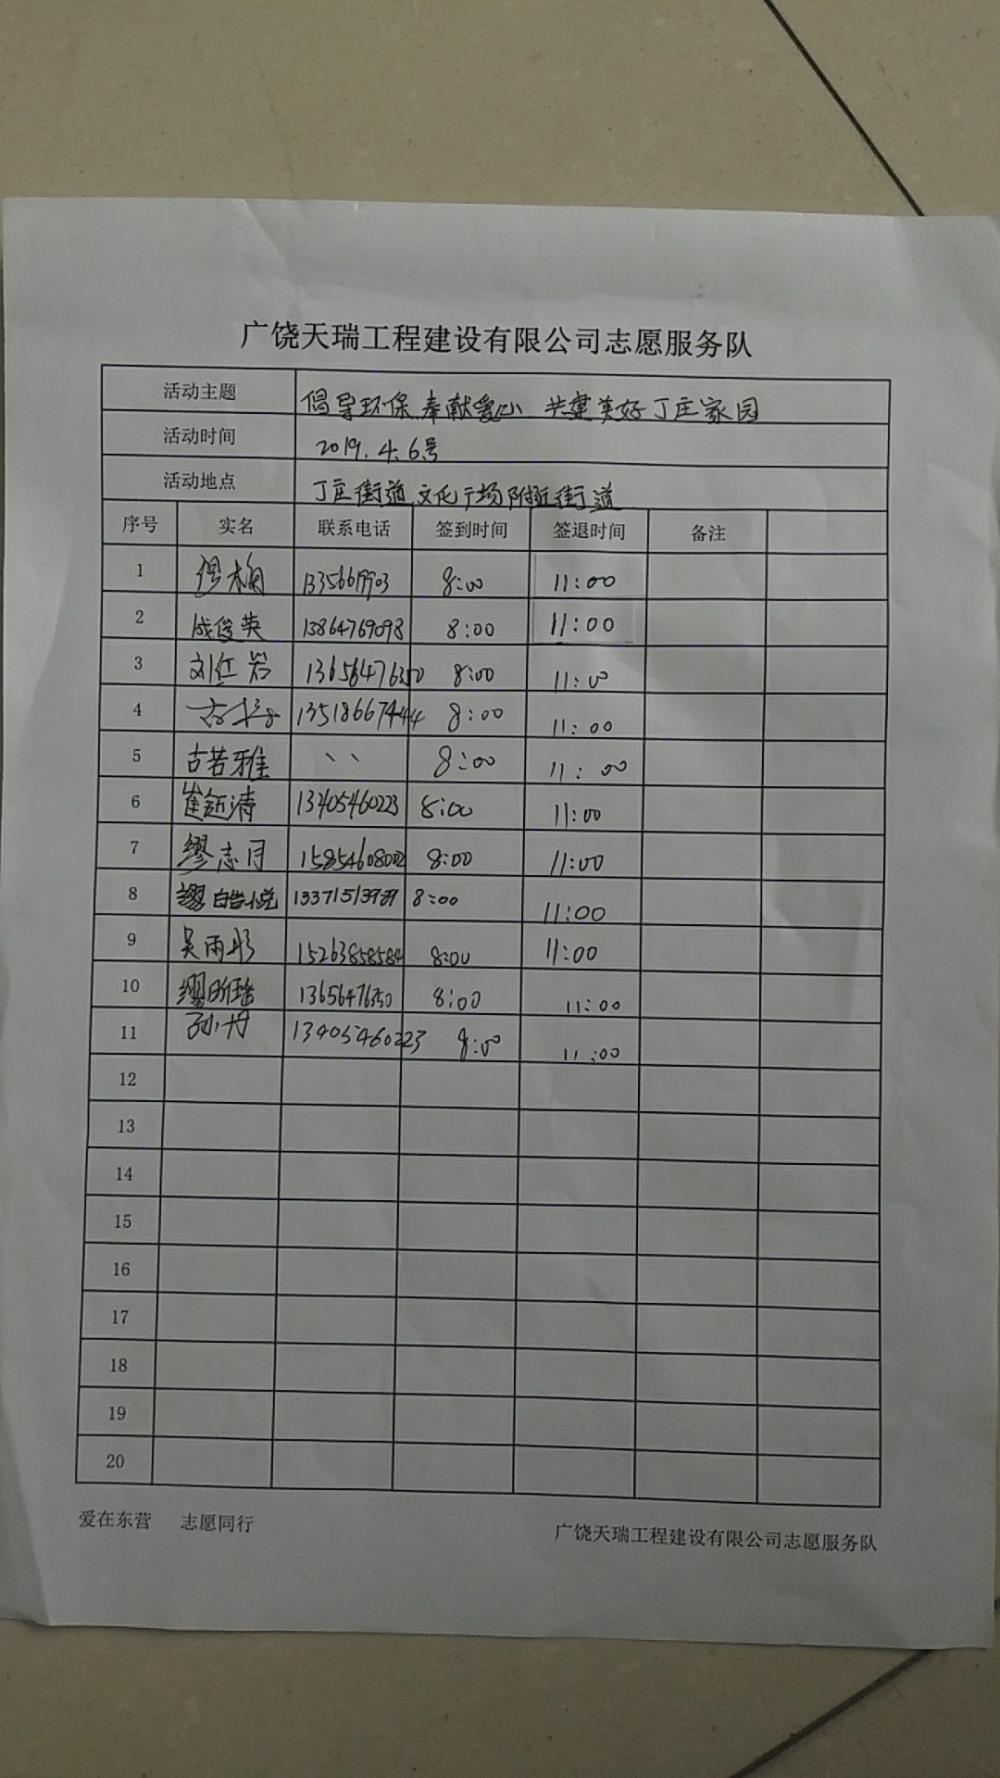 广饶天瑞工程建设有限公司志愿服务队
活动主题 倡导环保 奉献爱心 共建美好丁庄家园
活动时间 2019.4.6号
活动地点 丁庄街道文化广场附近街道
序号 实名 联系电话 签到时间 签退时间 备注
1 8:00 11:00
2 成俊英 13864769098 8:00 11:00
3 刘仁岩 13656476350 8:00 11:00
4 13518667444 8:00 11:00
5 古若雅 、、 8:00 11:00
6 13405460223 8:00 11:00
7 廖志月 15854608002 8:00 11:00
8 8:00 11:00
9 吴雨彤 15263858584 8:00 11:00
10 13656476350 8:00 11:00
11 孙丹 13405460223 8:00 11:00
12
13
14
15
16
17
18
19
20
爱在东营 志愿同行 广饶天瑞工程建设有限公司志愿服务队